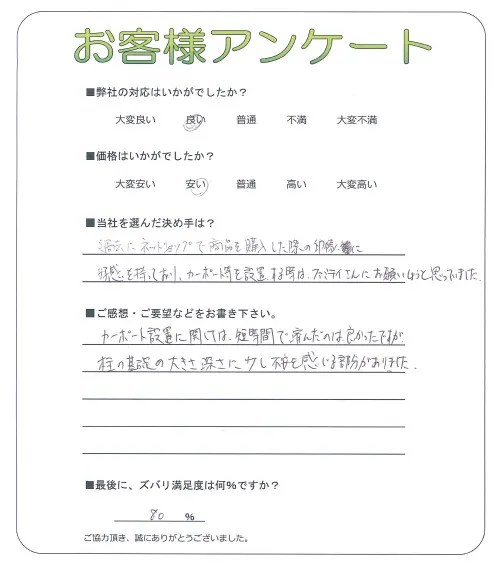 お客様アンケート
■弊社の対応はいかがでしたか？
大変良い 良い 普通 不満 大変不満
■価格はいかがでしたか？
大変安い 安い 普通 高い 大変高い
■当社を選んだ決め手は？
過去にネットショップで商品を購入した際の印象に
好感を持っており、カーポート等を設置する時は、さんにお願いしようと思ってました.
■ご感想・ご要望などをお書き下さい。
カーポート設置に関しては、短時間で済んだのは良かったですが
柱の基礎の大きさ深さに少し不安を感じる部分がありました.
■最後に、ズバリ満足度は何%ですか？
80 %
ご協力頂き、誠にありがとうございました。